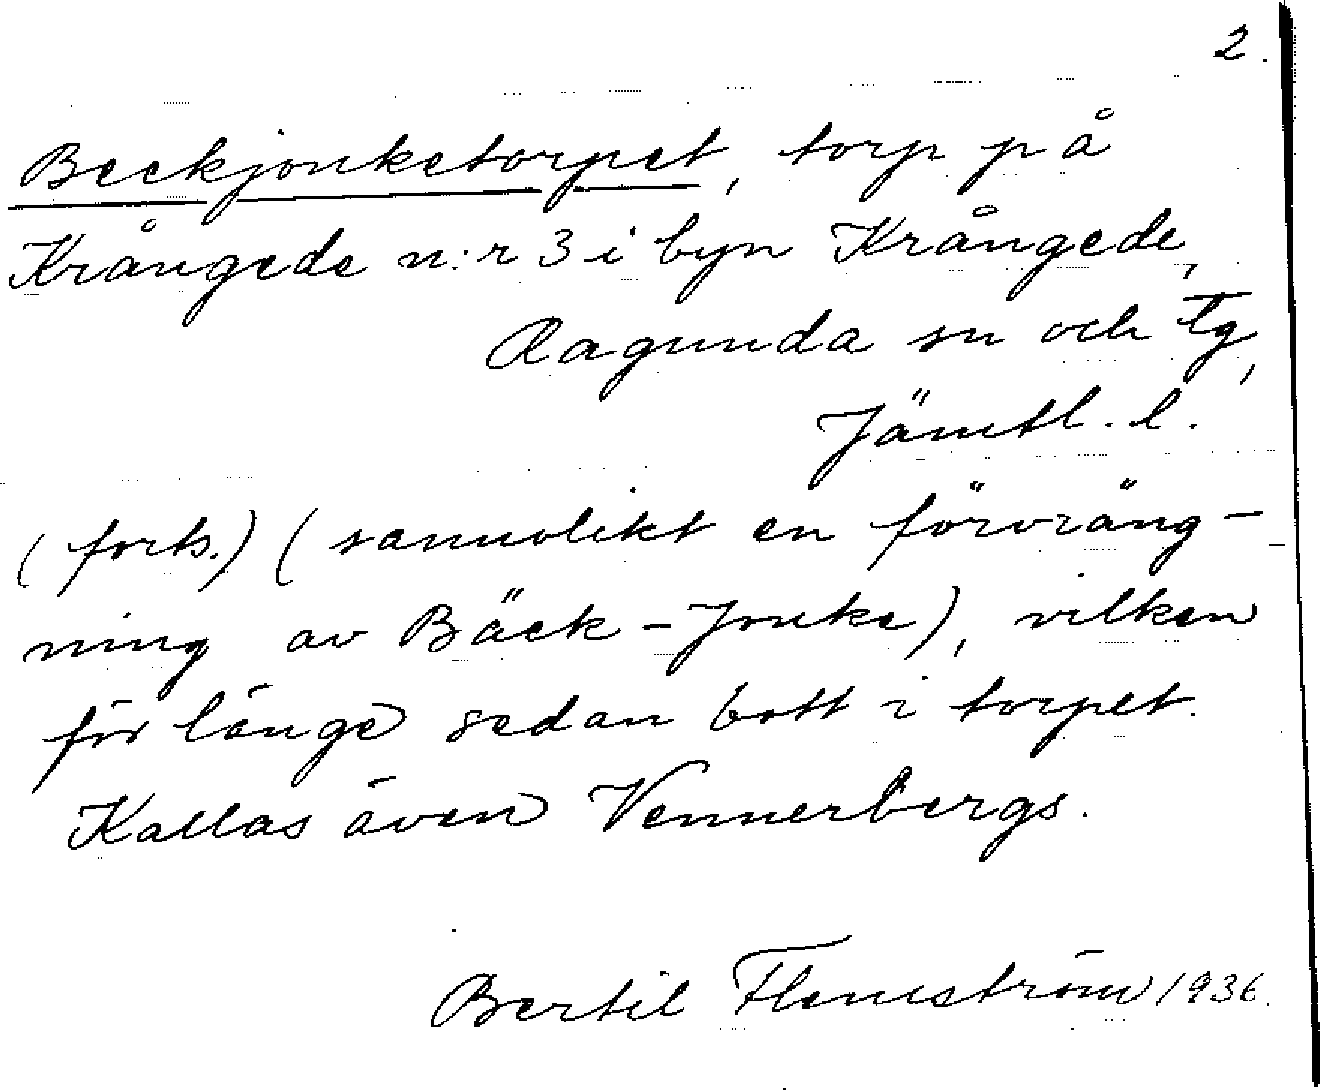 2.
Beckjonketorpet, torp på
Krångede n:r 3 i byn Krångede,
Ragunda sn och tg,
Jämtl. l.
(forts.) (sannolikt en förvräng-
ning av Bäck-Jonke), vilken
för länge sedan bott i torpet.
Kallas även Vennerbergs.
Bertil Flemström 1936.